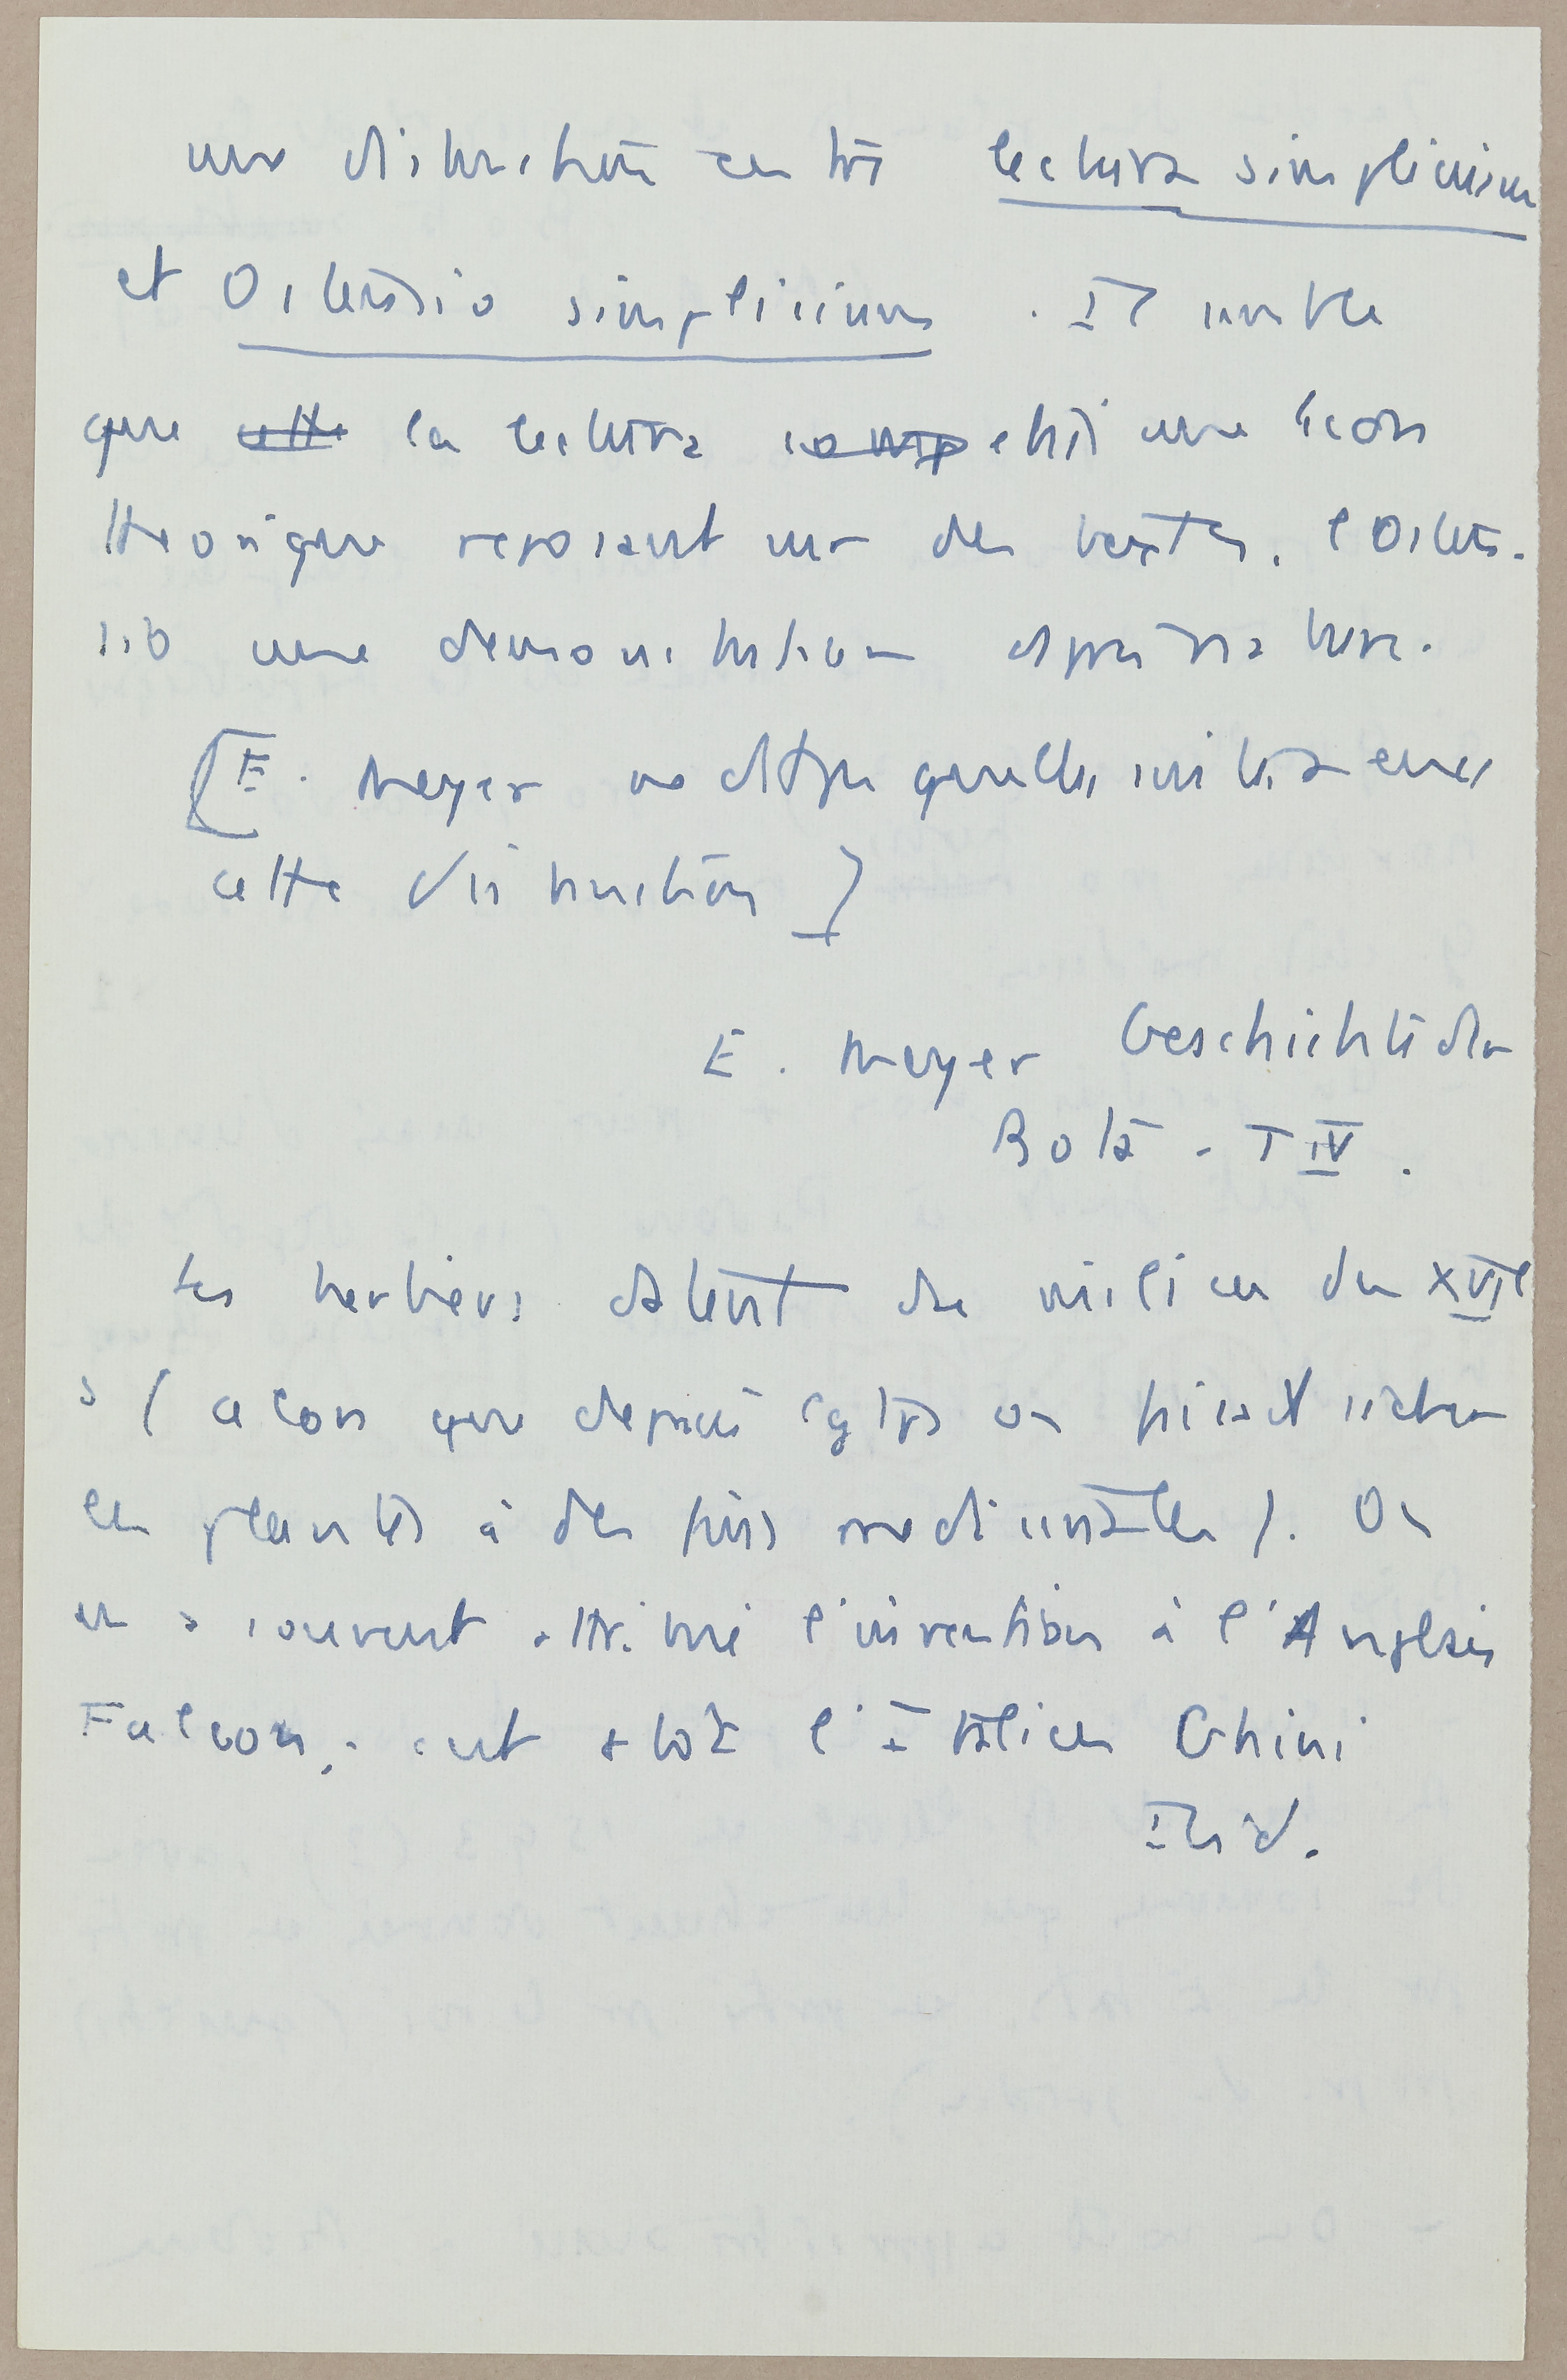 une distinction entre lectura simplicium
et Ostensio simplicium. Il semble
que cette la lectura comp était une leçon
théorique reposant sur des textes. l'Osten-
sio une demonstration d'après nature.
[E. Meyer ne dit pas quelle
cette distinction]
E. Meyer Geschichte der
Bota. T IV.
Les herbiers datent du milieu du XVIe
s (alors que depuis on faisait sécher
les plantes à des fins medicinales). On
en a souvent attribué l'invention à l'Anglais
Falcon; c'est plutôt l'Italien Ghini
Ibid.